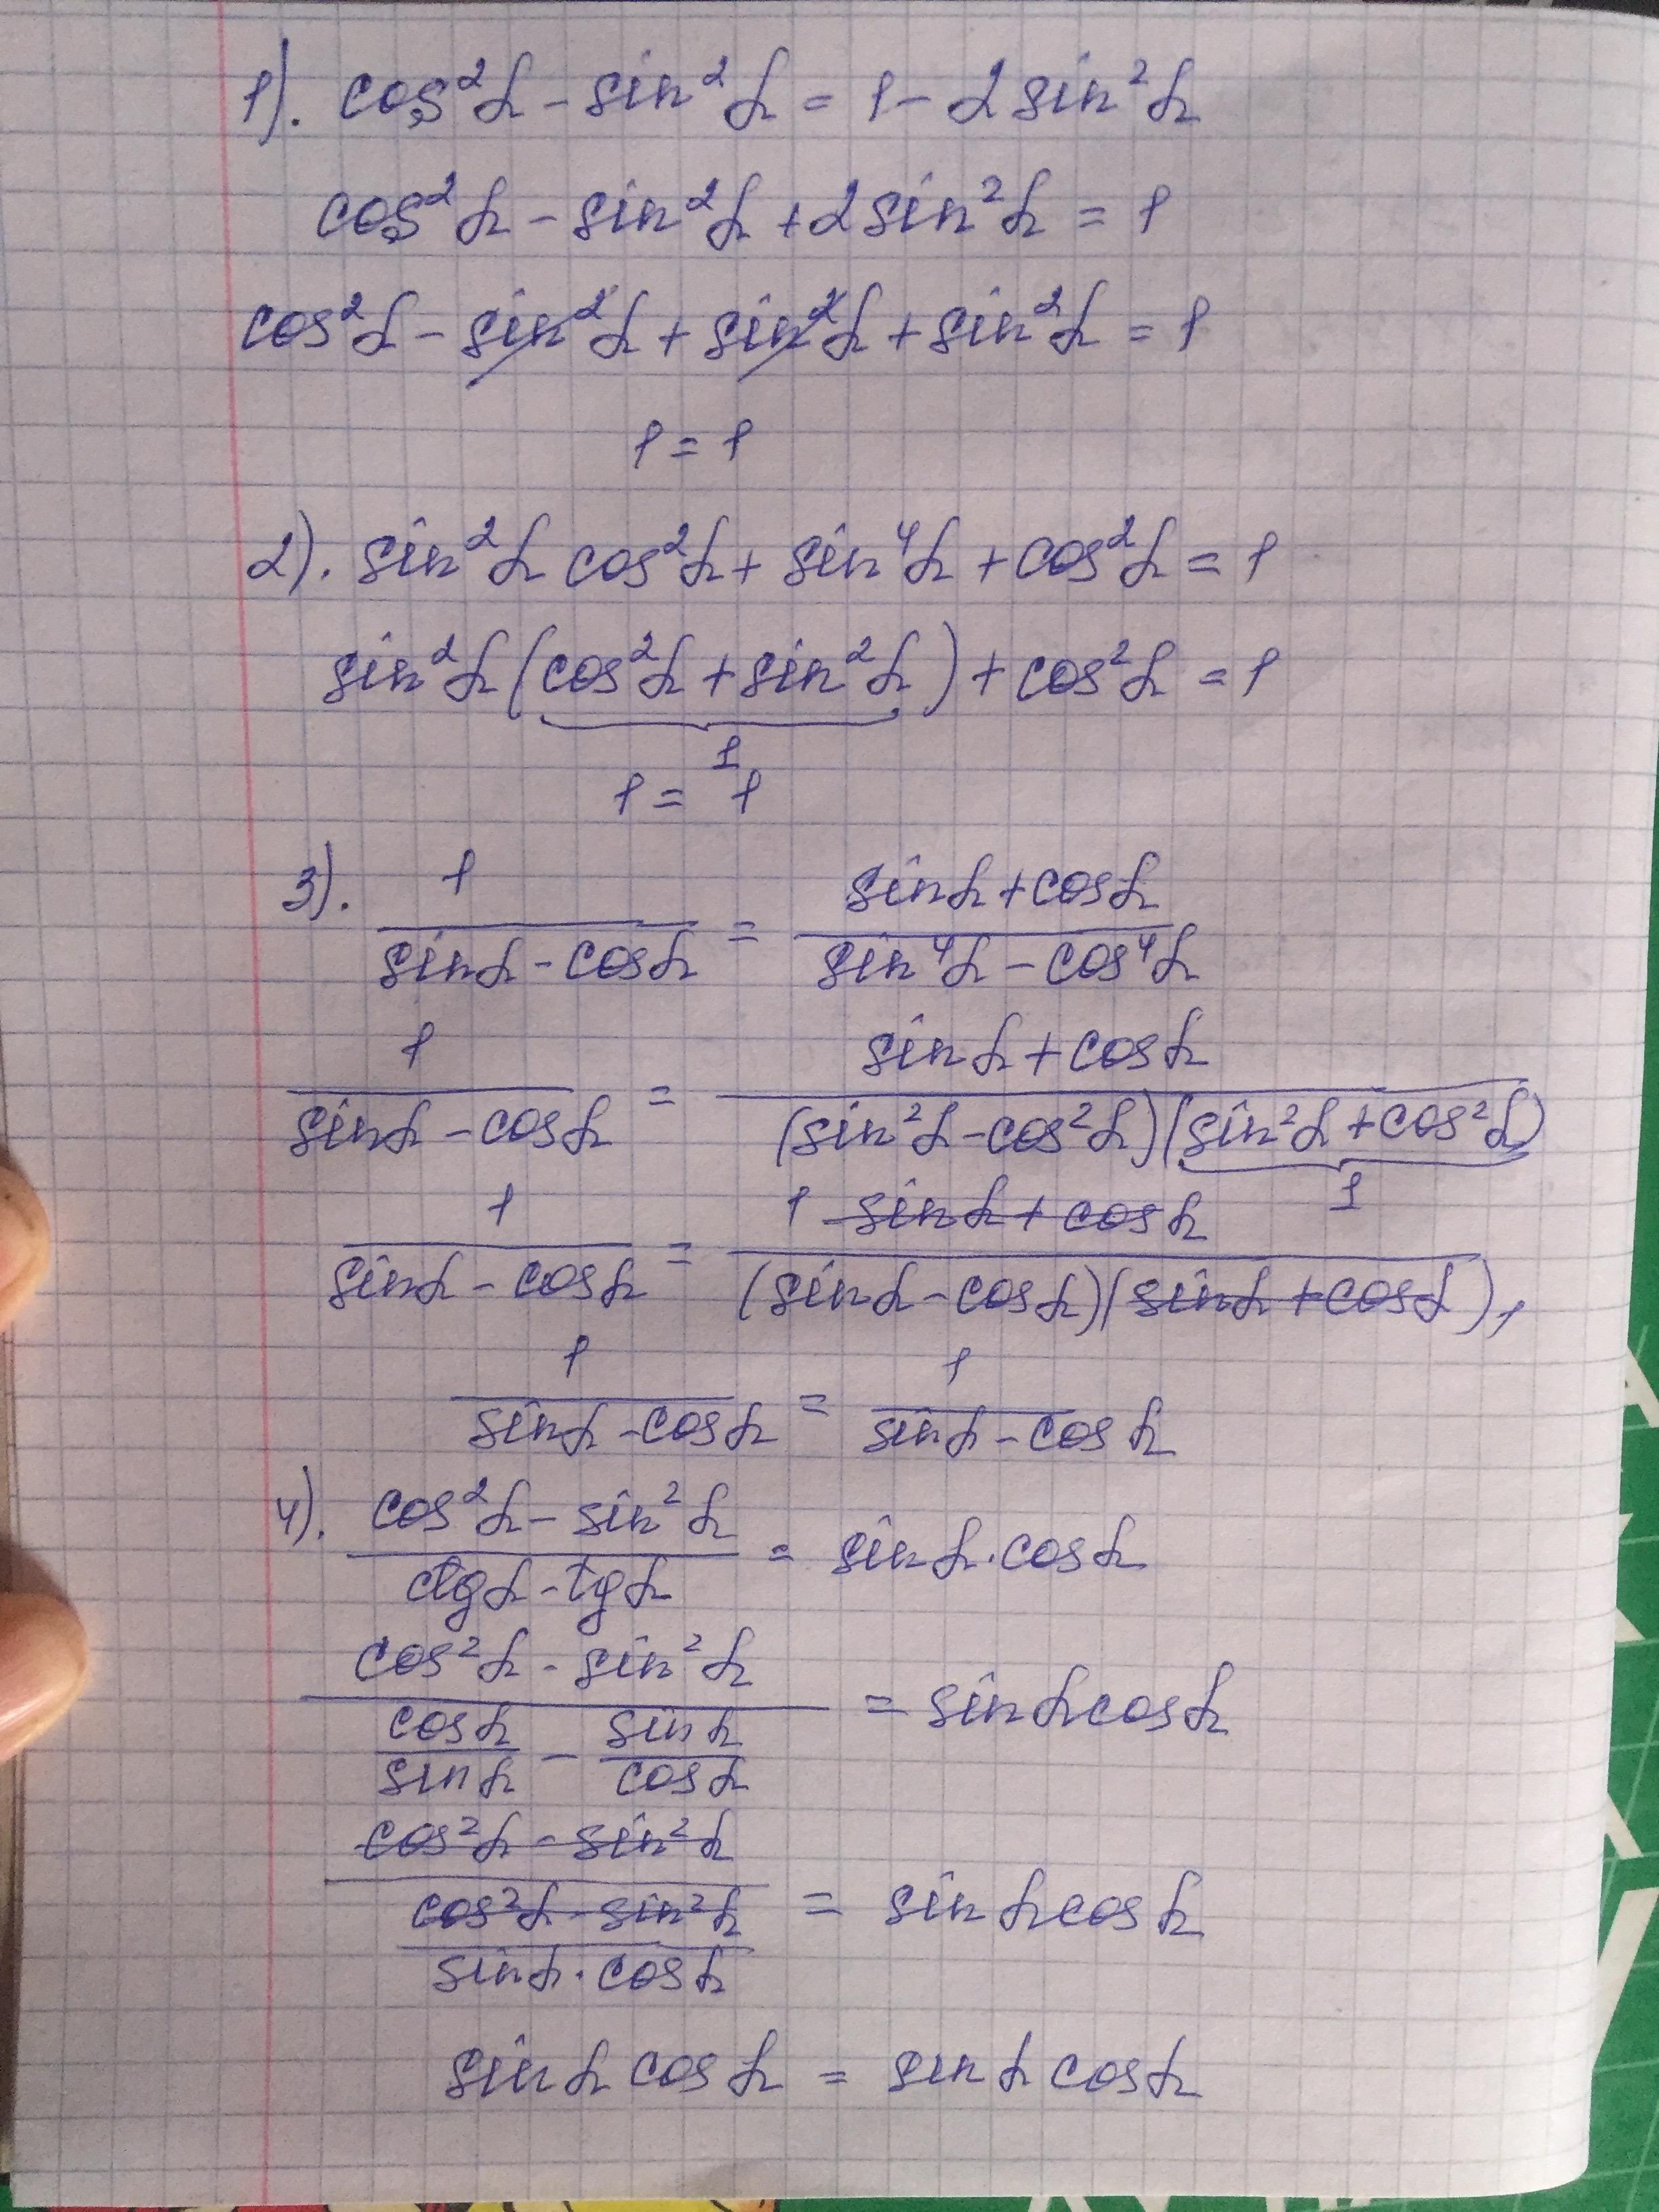 1). cos²α - sin²α = 1 - 2 sin²α
cos²α - sin²α + 2 sin²α = 1
cos²α - sin²α + sin²α + sin²α = 1
1 = 1
2). sin²α cos²α + sin⁴α + cos²α = 1
sin²α (cos²α + sin²α) + cos²α = 1
1
1 = 1
3). 1 sinα + cosα
sinα - cosα = sin⁴α - cos⁴α
1 sinα + cosα
sinα - cosα = (sin²α - cos²α)(sin²α + cos²α)
1 1 sinα + cosα 1
sinα - cosα = (sinα - cosα)(sinα + cosα) 1
1 1
sinα - cosα = sinα - cosα
4). cos²α - sin²α
ctgα - tgα = sinα · cosα
cos²α - sin²α
cosα sinα = sinα cosα
sinα - cosα
cos²α - sin²α
cos²α - sin²α = sinα cosα
sinα · cosα
sinα cosα = sinα cosα